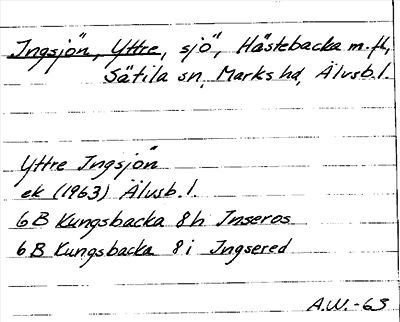 Ingsjön, Yttre, sjö, Hästebacka m.fl,
Sätila sn, Marks hd, Älvsb.l.
Yttre Ingsjön
ek (1963) Älvsb.l.
6B Kungsbacka 8h Inseros
6B Kungsbacka 8i Ingsered
A.W.-63